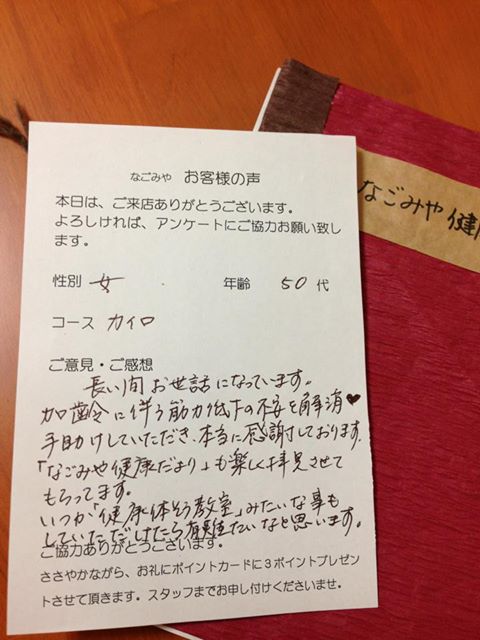 なごみや お客様の声
本日は、ご来店ありがとうございます。
よろしければ、アンケートにご協力お願い致し
ます。
性別 女 年齢 50 代
コース カイロ
ご意見・ご感想
長い間お世話になっています。
加齢に伴う筋力低下の不安を解消♥
手助けしていただき、本当に感謝しております。
「なごみや健康だより」も楽しく拝見させて
もらってます。
いつか「健康体そう教室」みたいな事も
していただけたら有難たいなと思います。
ご協力ありがとうございます。
ささやかながら、お礼にポイントカードに3ポイントプレゼン
トさせて頂きます。スタッフまでお申し付けくださいませ。
なごみや 健